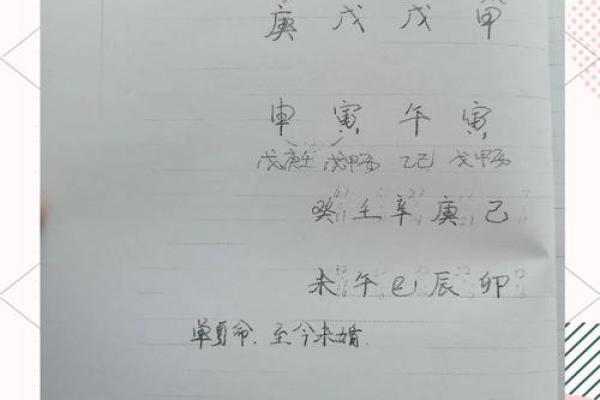 庚 戊 戊 甲
申 寅 午 寅
戊庚壬 戊甲丙 乙己 戊甲丙
癸 壬 辛 庚 己
未 午 巳 辰 卯
单身命. 至今未婚.